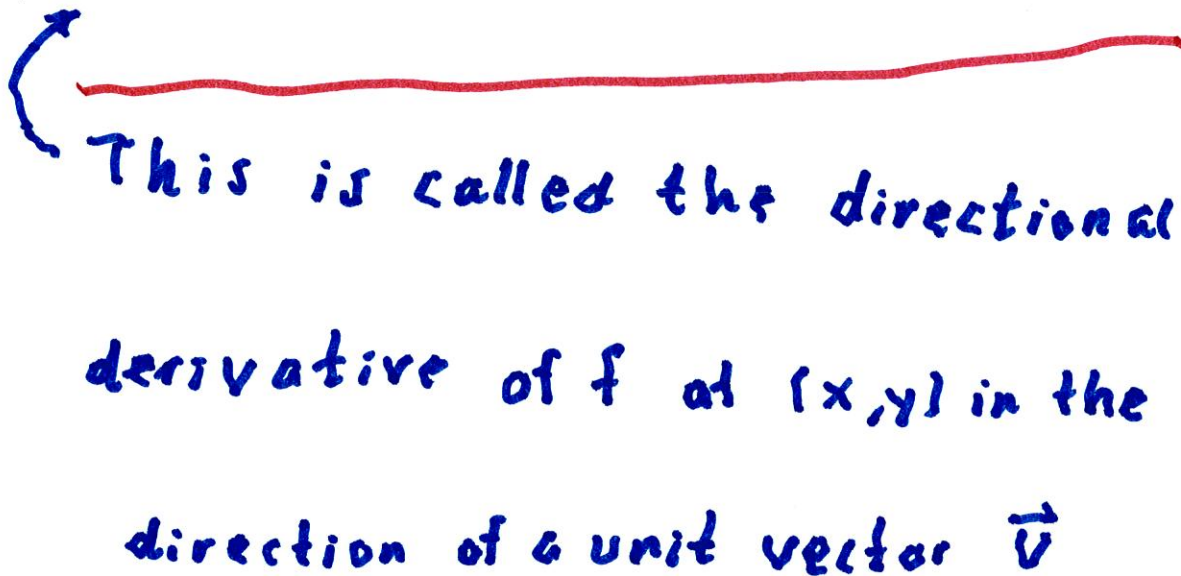 This is called the directional
derivative of f at (x,y) in the
direction of a unit vector v⃗